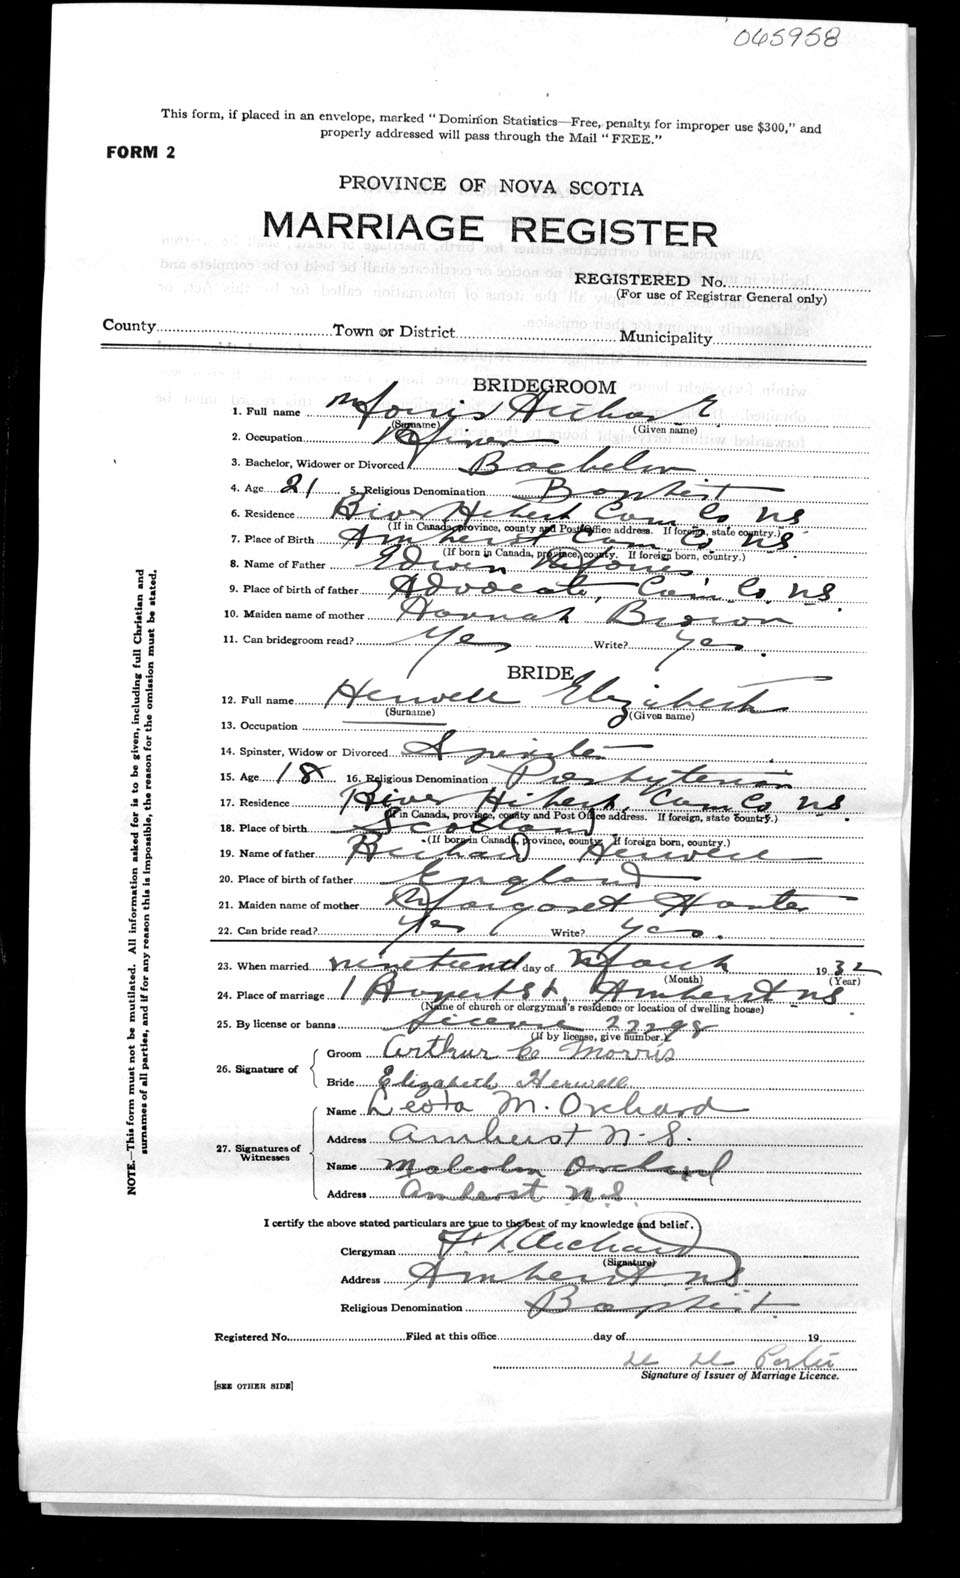 065958
This form, if placed in an envelope, marked "Dominion Statistics—Free, penalty for improper use $300," and
properly addressed will pass through the Mail "FREE."
FORM 2
PROVINCE OF NOVA SCOTIA
MARRIAGE REGISTER
REGISTERED No.
(For use of Registrar General only)
County Town or District Municipality
BRIDEGROOM
1. Full name Morris Arthur E
(Surname) (Given name)
2. Occupation Miner
3. Bachelor, Widower or Divorced Bachelor
4. Age 21 5. Religious Denomination Baptist
6. Residence River Hebert Cum Co NS
(If in Canada, province, county and Post Office address. If foreign, state country.)
7. Place of Birth Amherst Cum Co NS
(If born in Canada, province, county. If foreign born, country.)
8. Name of Father Edwin Morris
9. Place of birth of father Advocate, Cum Co. NS.
10. Maiden name of mother Hannah Brown
11. Can bridegroom read? Yes Write? Yes.
BRIDE
12. Full name Herwell Elizabeth
(Surname) (Given name)
13. Occupation
14. Spinster, Widow or Divorced Spinster
15. Age 18 16. Religious Denomination Presbyterian
17. Residence River Hibert, Cum Co NS
(If in Canada, province, county and Post Office address. If foreign, state country.)
18. Place of birth Scotland
(If born in Canada, province, county. If foreign born, country.)
19. Name of father Richard Herwell
20. Place of birth of father England
21. Maiden name of mother Margaret Hunter
22. Can bride read? Yes Write? Yes.
23. When married nineteenth day of March 1932
(Month) (Year)
24. Place of marriage 1 Rupert St, Amherst NS
(Name of church or clergyman's residence or location of dwelling house)
25. By license or banns license 22298
(If by license, give number.)
26. Signature of
Groom Arthur E Morris
Bride Elizabeth Herwell
27. Signatures of Witnesses
Name Leota M. Orchard
Address Amherst N.S.
Name Malcolm Orchard
Address Amherst N.S.
I certify the above stated particulars are true to the best of my knowledge and belief.
Clergyman Orchard
(Signature)
Address Amherst NS
Religious Denomination Baptist
Registered No. Filed at this office day of 19
Porter
Signature of Issuer of Marriage Licence.
[SEE OTHER SIDE]
NOTE.—This form must not be mutilated. All information asked for is to be given, including full Christian and
surnames of all parties, and if for any reason this is impossible, the reason for the omission must be stated.